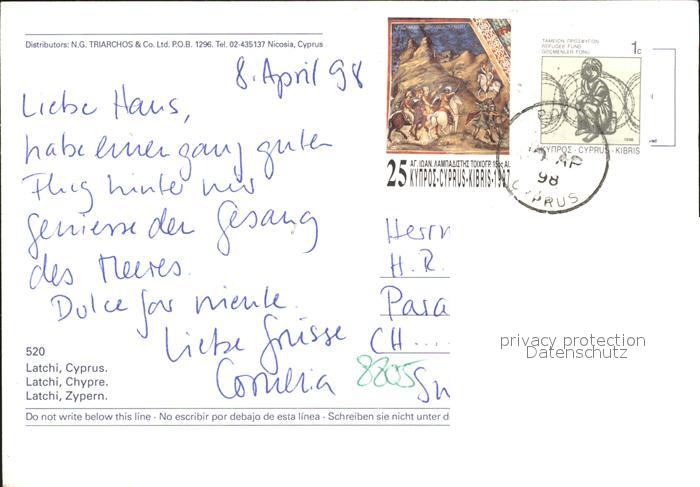 Distributors: N.G. TRIARCHOS & Co. Ltd. P.O.B. 1296. Tel. 02-435137 Nicosia, Cyprus
8. April 98
Liebe Hans,
habe einen ganz guten
Flug hinter mir
geniesse den Gesang
des Meeres.
Dolce far niente.
Liebe Grüsse
Cornelia
520
Latchi, Cyprus.
Latchi, Chypre.
Latchi, Zypern.
Do not write below this line - No escribir por debajo de esta línea - Schreiben sie nicht unter d
25
ΑΓ. ΙΩΑΝ. ΛΑΜΠΑΔΙΣΤΗΣ ΤΟΙΧΟΓΡ. 15ος ΑΙ.
ΚΥΠΡΟΣ·CYPRUS·KIBRIS·1997
ΤΑΜΕΙΟΝ ΠΡΟΣΦΥΓΩΝ
REFUGEE FUND
GÖÇMENLER FONU
1c
1998
ΚΥΠΡΟΣ - CYPRUS - KIBRIS
AP
98
CYPRUS
Herrn
H. R.
Para
CH ....
8805
privacy protection
Datenschutz